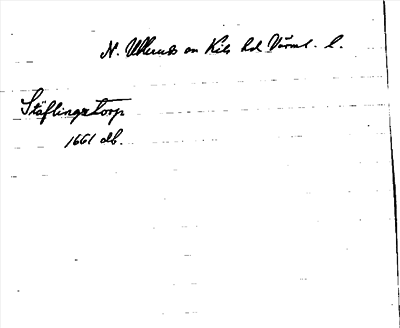 N. Ullerud sn Kils hd Värml. l.
Stäflingstorp
1661 db.